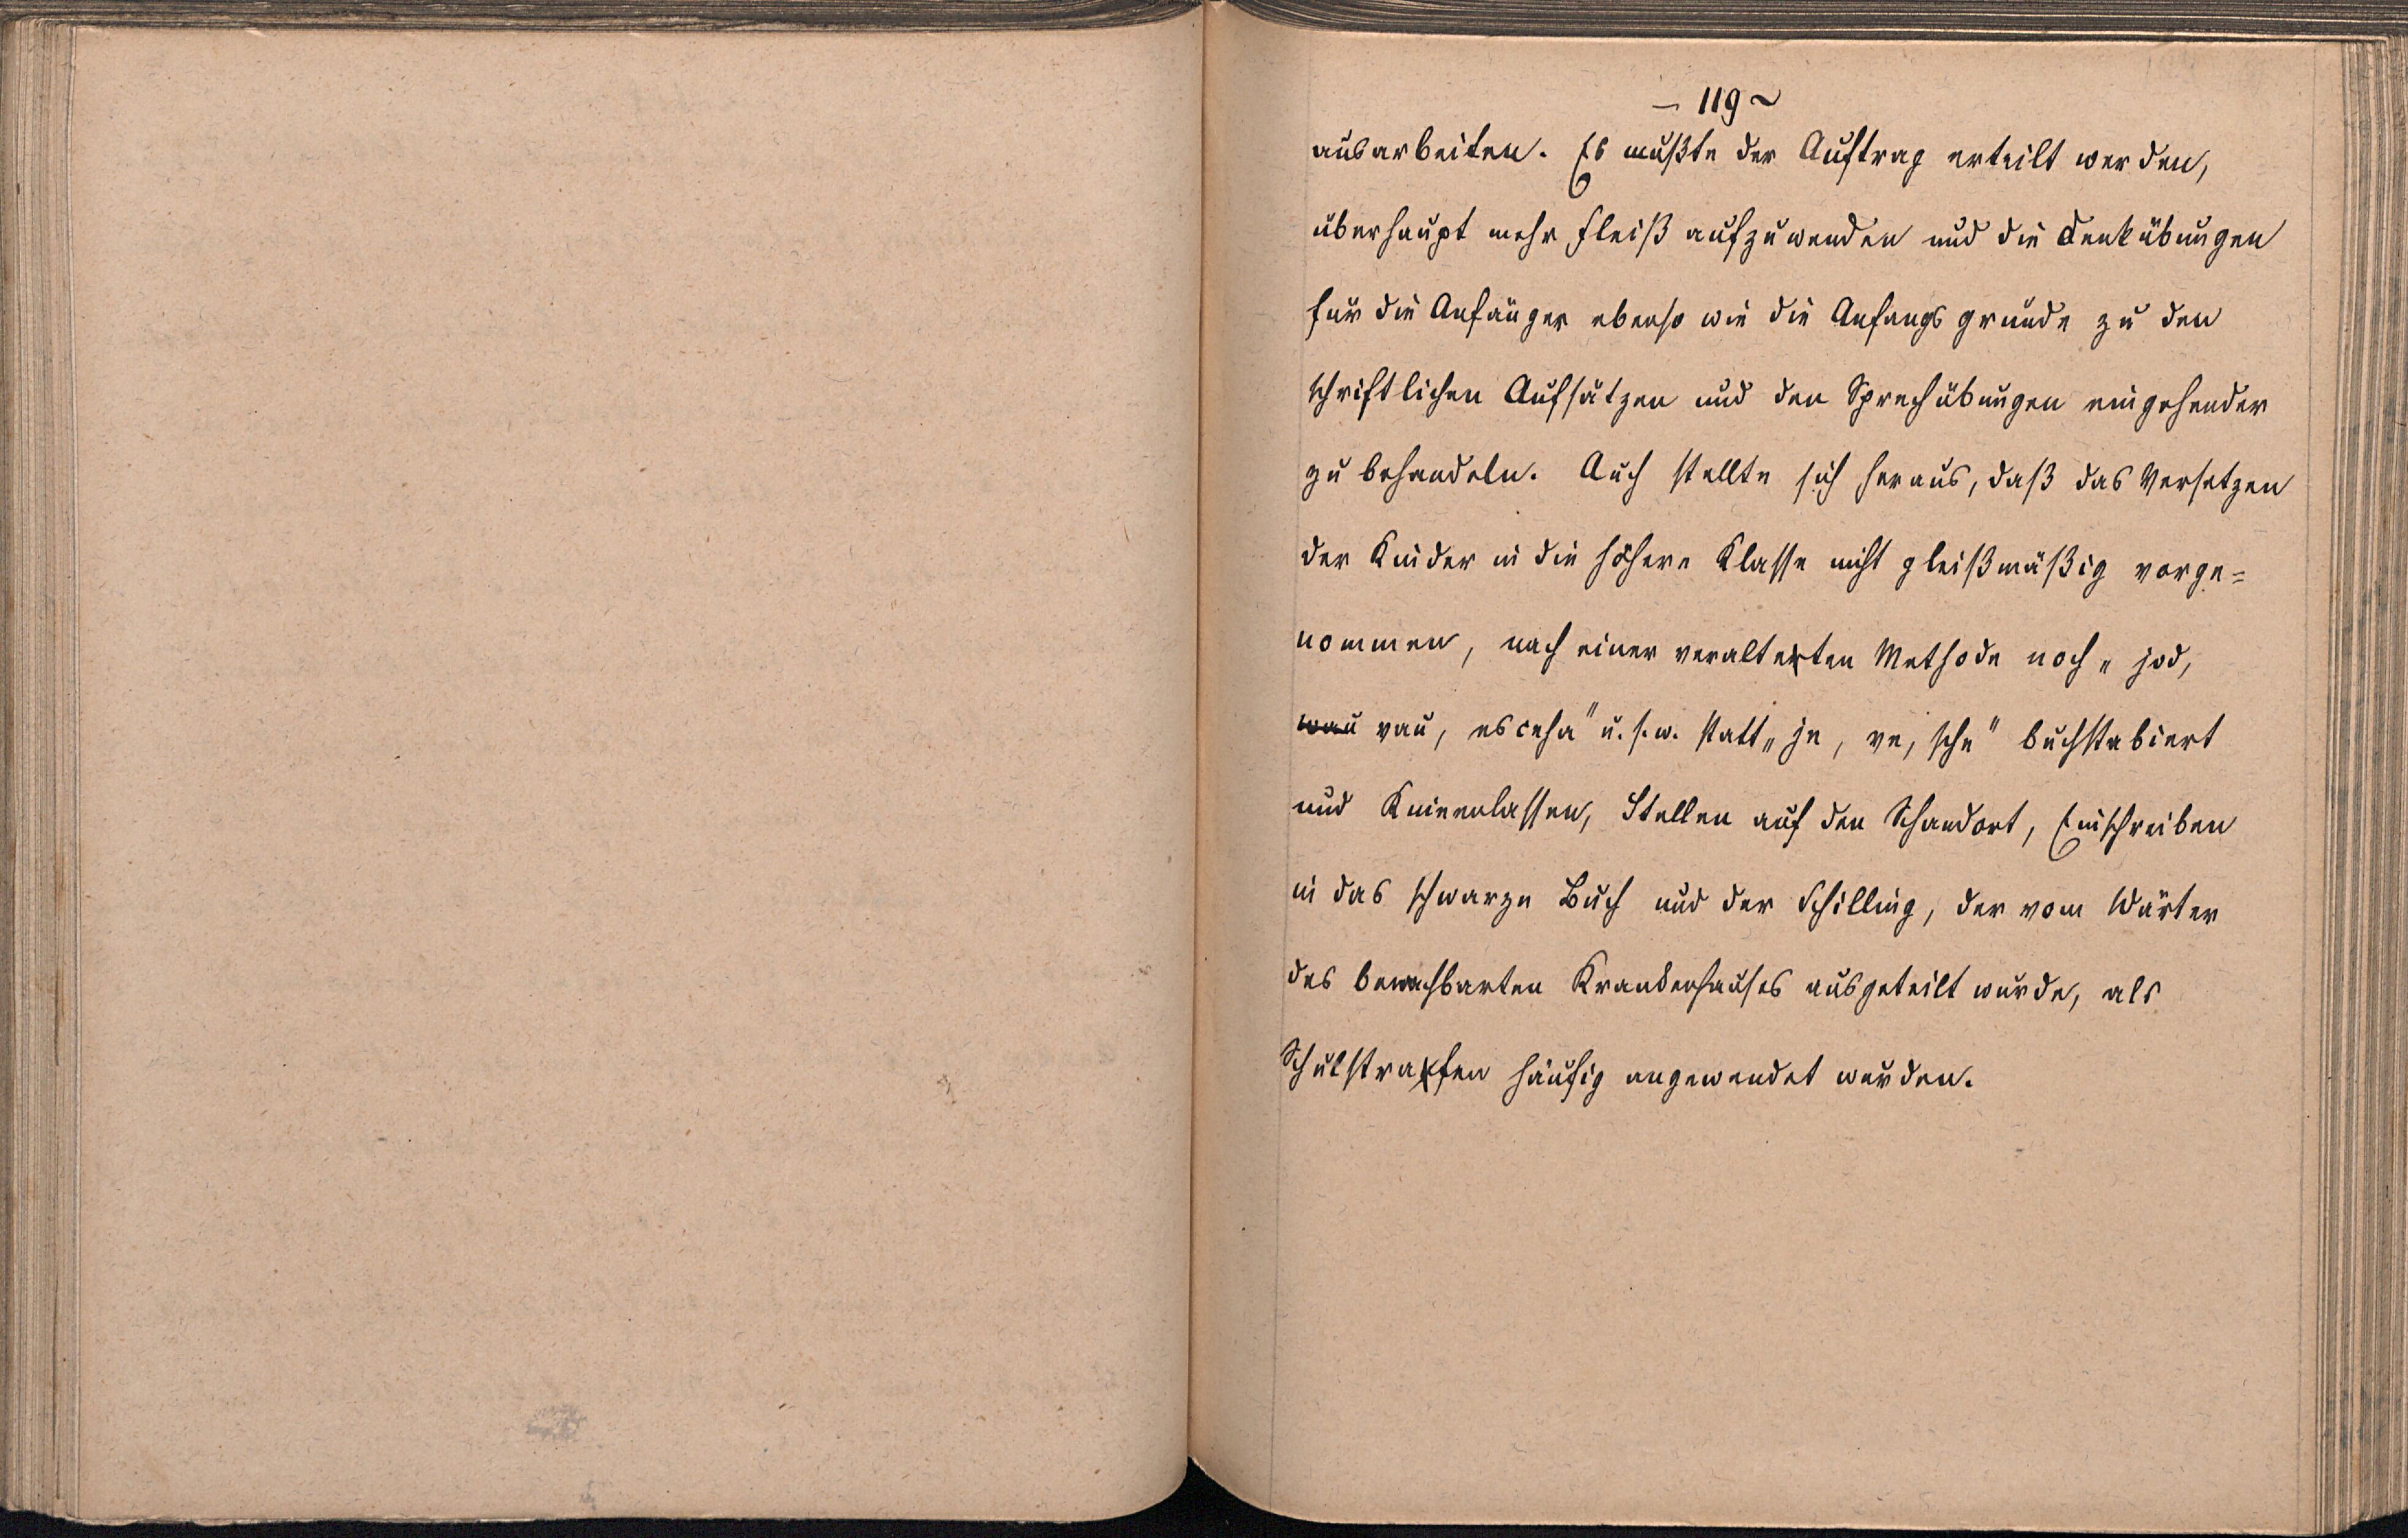 – 119 ~
ausarbeiten. Es mußte der Auftrag erteilt werden,
überhaupt mehr Fleiß aufzuwenden und die Denkübungen
für die Anfänger ebenso wie die Anfangsgründe zu den
schriftlichen Aufsätzen und den Sprechübungen eingehender
zu behandeln. Auch stellte sich heraus, daß das Versetzen
der Kinder in die höhere Klasse nicht gleißmäßig vorge=
nommen, nach einer veralteten Methode noch „jod,
wau vau, esceha" u.s.w. statt „je, ve, sche" buchstabiert
und Knieenlassen, Stellen auf den Schandort, Einschreiben
in das schwarze Buch und der Schilling, der vom Wärter
des benachbarten Krankenhauses ausgeteilt wurde, als
Schulstrafen häufig angewendet wurden.